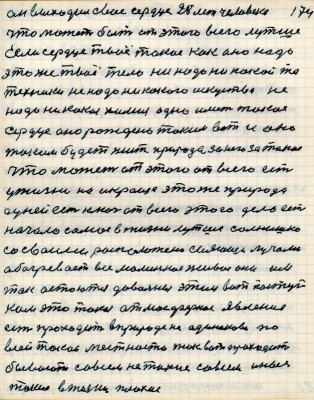 он выходил свое сердце 28 лет человека 174
что может быт от этого всего лутше
Если сердце твоё такое как оно надо
это же твоё тело ни надо ни какой то
техники не надо никакого искуства не
надо никакая химия одно имет такое
сердце оно рождено таким вот и оно
таким будет жит природа за него за такое
Что может от этого от всего ест
у жизни на это же природа
а у ней ест кног от всего этого дело ест
начало самое в жизни лутше солнышко
со своими расположено сияющи лучами
обогревает все маленькое живое она им
так остаются доволная этим вот поступ
ком это такие атмосферное явления
ест проходит в природе не одинаково по
всей такое местности так вот проходит
бывают совсем не такие совсем иные
такие в жизни плохие